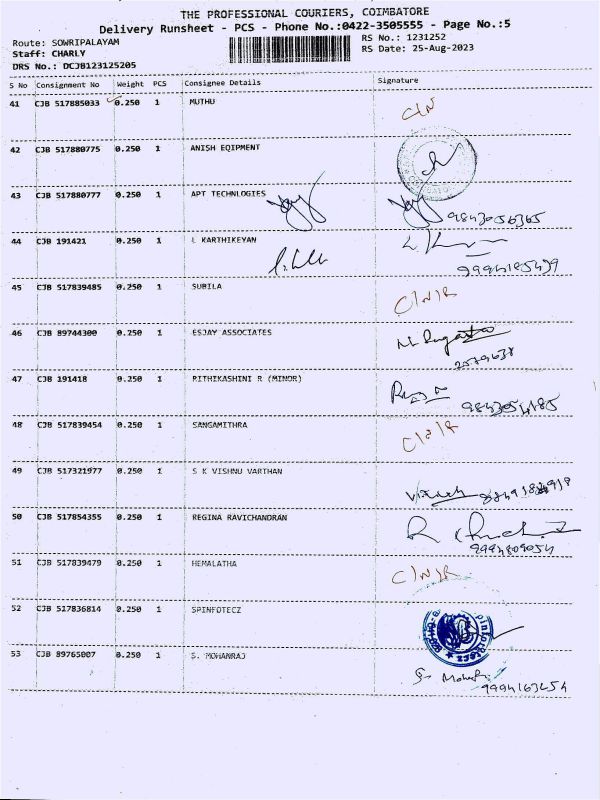 THE PROFESSIONAL COURIERS, COIMBATORE
Delivery Runsheet - PCS - Phone No.:0422-3505555 - Page No.:5
Route: SOWRIPALAYAM
RS No.: 1231252
Staff: CHARLY
RS Date: 25-Aug-2023
DRS No.: DCJB123125205
S No Consignment No Weight PCS Consignee Details Signature
41 CJB 517885033 0.250 1 MUTHU
C/N
42 CJB 517880775 0.250 1 ANISH EQIPMENT
43 CJB 517880777 0.250 1 APT TECHNLOGIES
9843056365
44 CJB 191421 0.250 1 L KARTHIKEYAN
9994185439
45 CJB 517839485 0.250 1 SUBILA
C/N/R
46 CJB 89744300 0.250 1 ESJAY ASSOCIATES
2579638
47 CJB 191418 0.250 1 RITHIKASHINI R (MINOR)
9843054185
48 CJB 517839454 0.250 1 SANGAMITHRA
C/N/R
49 CJB 517321977 0.250 1 S K VISHNU VARTHAN
50 CJB 517854355 0.250 1 REGINA RAVICHANDRAN
9994809054
51 CJB 517839479 0.250 1 HEMALATHA
C/N/R
52 CJB 517836814 0.250 1 SPINFOTECZ
53 CJB 89765007 0.250 1 S. MOHANRAJ
9994163454